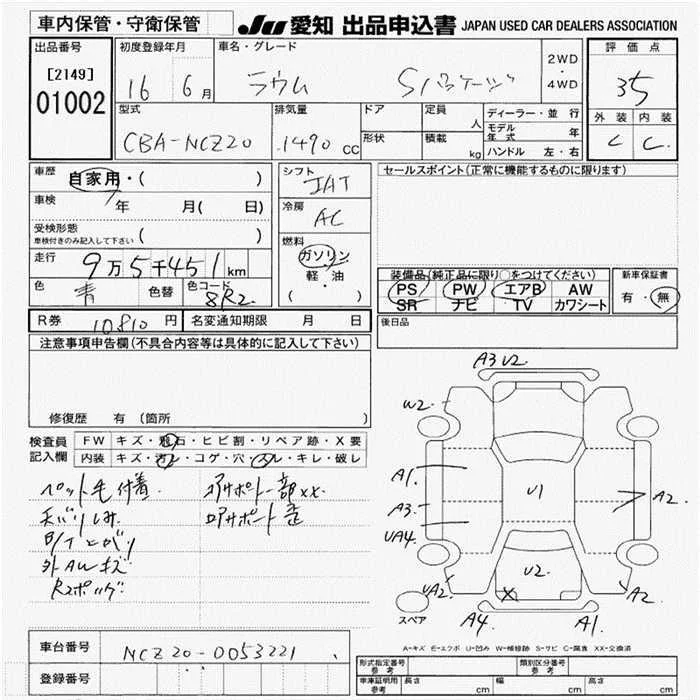 車内保管・守衛保管
JU 愛知 出品申込書 JAPAN USED CAR DEALERS ASSOCIATION
出品番号 初度登録年月 車名・グレード 評価点
[2149]
01002
16 6月 ラウム Sパッケージ 2WD・4WD 35
型式 排気量 ドア 定員 人 ディーラー・並行 外装 内装
CBA-NCZ20 1490 cc 形状 積載 kg モデル年式 年 C C
ハンドル 左・右
車歴 自家用・( )
シフト IAT
セールスポイント(正常に機能するものに限ります)
車検 年 月( 日)
冷房 AC
受検形態
車検付きのみ記入して下さい ( )
燃料 ガソリン 軽・油 ( )
走行 9万5千451km
装備品(純正品に限り○をつけてください) 新車保証書
色 青 色替 色コード 8R2
PS PW エアB AW 有・無
SR ナビ TV カワシート
R券 10810円 名変通知期限 月 日
後日品
注意事項申告欄(不具合内容等は具体的に記入して下さい)
修復歴 有(箇所 )
検査員記入欄 FW キズ・飛石・ヒビ割・リペア跡・X要
内装 キズ・汚レ・コゲ・穴・スレ・キレ・破レ
ペット毛付着
天バリしみ
外AWキズ
A3 U2
W2
A1
A3
UA4
UA2
U1
U2
X
A2
A2
A4
A1
スペア
A=キズ E=エクボ U=凹み W=補修跡 S=サビ C=腐食 XX=交換済
車台番号 NCZ20-0053221
登録番号
形式指定番号 参考 類別区分番号 参考
車庫証明用 参考 長さ cm 幅 cm 高さ cm